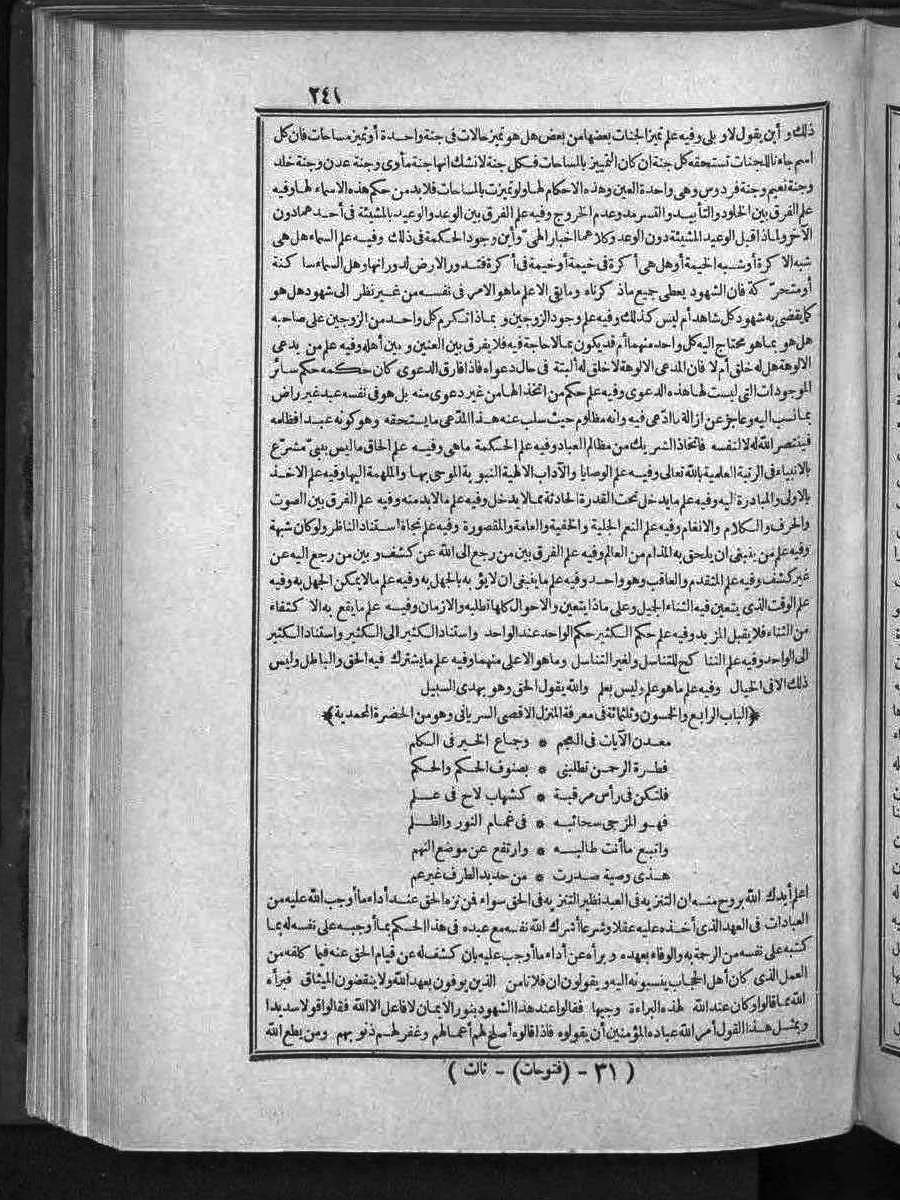 ٢٤١
ذلك و أين يقول لاو بلى وفيه علم تميز الجنات بعضها من بعض هل هو تميز حالات فى جنة واحدة أو تميز مساحات فان كل
اسم جاءنا للجنات تستحقه كل جنة ان كان التمييز بالمساحات فكل جنة لا نشك انها جنة مأوى وجنة عدن وجنة خلد
وجنة نعيم وجنة فردوس وهى واحدة العين وهذه الاحكام لها ولو تميزت بالمساحات فلا بد من حكم هذه الاسماء لها وفيه
علم الفرق بين الخلود والتأبيد والتسرمد وعدم الخروج وفيه علم الفرق بين الوعد والوعيد بالمشيئة فى أحدهما دون
الآخر ولماذا قبل الوعيد المشيئة دون الوعد وكلاهما اخبار الهى وأين وجود الحكمة فى ذلك وفيه علم السماء هل هى
شبه الاكرة أو شبه الخيمة أو هل هى أكرة فى خيمة أو خيمة فى أكرة فتدور الارض لدورانها وهل السماء ساكنة
أو متحركة فان الشهود يعطى جميع ماذكرناه وما بقى الا علم ماهو الامر فى نفسه من غير نظر الى شهود هل هو
كما يقضى به شهود كل شاهد أم ليس كذلك وفيه علم وجود الزوجين و بماذا تكرم كل واحد من الزوجين على صاحبه
هل هو بما هو محتاج اليه كل واحد منهما أم قد يكون بما لا حاجة فيه فلا يفرق بين العنين و بين أهله وفيه علم من يدعى
الالوهة هل له خلق أم لا فان المدعى الالوهة لا خلق له ألبتة فى حال دعواه فاذا فارق الدعوى كان حكمه حكم سائر
الموجودات التى ليست لها هذه الدعوى وفيه علم حكم من اتخذ الها من غير دعوى منه بل هو فى نفسه عبد غير راض
بما نسب اليه وعاجز عن ازالة ما ادعى فيه وانه مظلوم حيث سلب عنه هذا المدعى ما يستحقه وهو كونه عبدا فظلمه
فينتصر الله له لا لنفسه فاتخاذ الشريك من مظالم العباد وفيه علم الحكمة ماهى وفيه علم الحاق ماليس بنبى مشرع
بالانبياء فى الرتبة العلمية بالله تعالى وفيه علم الوصايا والآداب الالهية النبوية الموحى بها والملهمة اليها وفيه علم الاخذ
بالاولى والمبادرة اليه وفيه علم ما يدخل تحت القدرة الحادثة مما لا يدخل وفيه علم ما لا بد منه وفيه علم الفرق بين الصوت
والحرف والكلام والانغام وفيه علم النعم الجلية والخفية والعامة والمقصورة وفيه علم نجاة استناد الناظر ولو كان شبهة
وفيه علم من ينبغى ان يلحق به المذام من العالم وفيه علم الفرق بين من رجع الى الله عن كشف و بين من رجع اليه عن
غير كشف وفيه علم المتقدم والعاقب وهو واحد وفيه علم ما ينبغى ان لا يؤبه بالجهل به وفيه علم ما لا يمكن الجهل به وفيه
علم الوقت الذى يتعين فيه الثناء الجميل وعلى ماذا يتعين والاحوال كلها تطلبه والازمان وفيه علم ما يقع به الاكتفاء
من الثناء فلا يقبل المزيد وفيه علم حكم الكثير حكم الواحد عند الواحد واستناد الكثير الى الكثير واستناد الكثير
الى الواحد وفيه علم التناكح للتناسل ولغير التناسل وما هو الاعلى منهما وفيه علم ما يشترك فيه الحق والباطل وليس
ذلك الا فى الخيال وفيه علم ماهو علم وليس بعلم والله يقول الحق وهو يهدى السبيل
﴿الباب الرابع والخمسون وثلثمائة فى معرفة المنزل الاقصى السريانى وهو من الحضرة المحمدية﴾
معدن الآيات فى العجم * وجماع الخير فى الكلم
فطرة الرحمن تطلبنى * بصنوف الحكم والحكم
فلتكن فى رأس مرقبة * كشهاب لاح فى علم
فهو المزجى سحائبه * فى غمام النور والظلم
واتبع ما أنت طالبه * وارتفع عن موضع التهم
هذى وصية صدرت * من حديد الطرف غير عم
اعلم أيدك الله بروح منه ان التنزيه فى العبد نظير التنزيه فى الحق سواء فمن نزه الحق عند أداء ما أوجب الله عليه من
العبادات فى العهد الذى أخذه عليه عقلا وشرعا أشرك الله نفسه مع عبده فى هذا الحكم بما أوجبه على نفسه له بما
كتبه على نفسه من الرحمة به والوفاء بعهده و برأه عن أداء ما أوجب عليه بان كشف له عن قيام الحق عنه فيما كلفه من
العمل الذى كان أهل الحجاب ينسبونه اليه و يقولون ان فلانا من الذين يوفون بعهد الله ولا ينقضون الميثاق فبرأه
الله مما قالوا وكان عند الله لهذه البراءة وجيها فقالوا عند هذا الشهود بنور الايمان لا فاعل الا الله فقالوا قولا سديدا
وبمثل هذا القول أمر الله عباده المؤمنين أن يقولوه فاذا قالوه أصلح لهم أعمالهم وغفر لهم ذنوبهم ومن يطع الله
( ٣١ - (فتوحات) - ثالث )